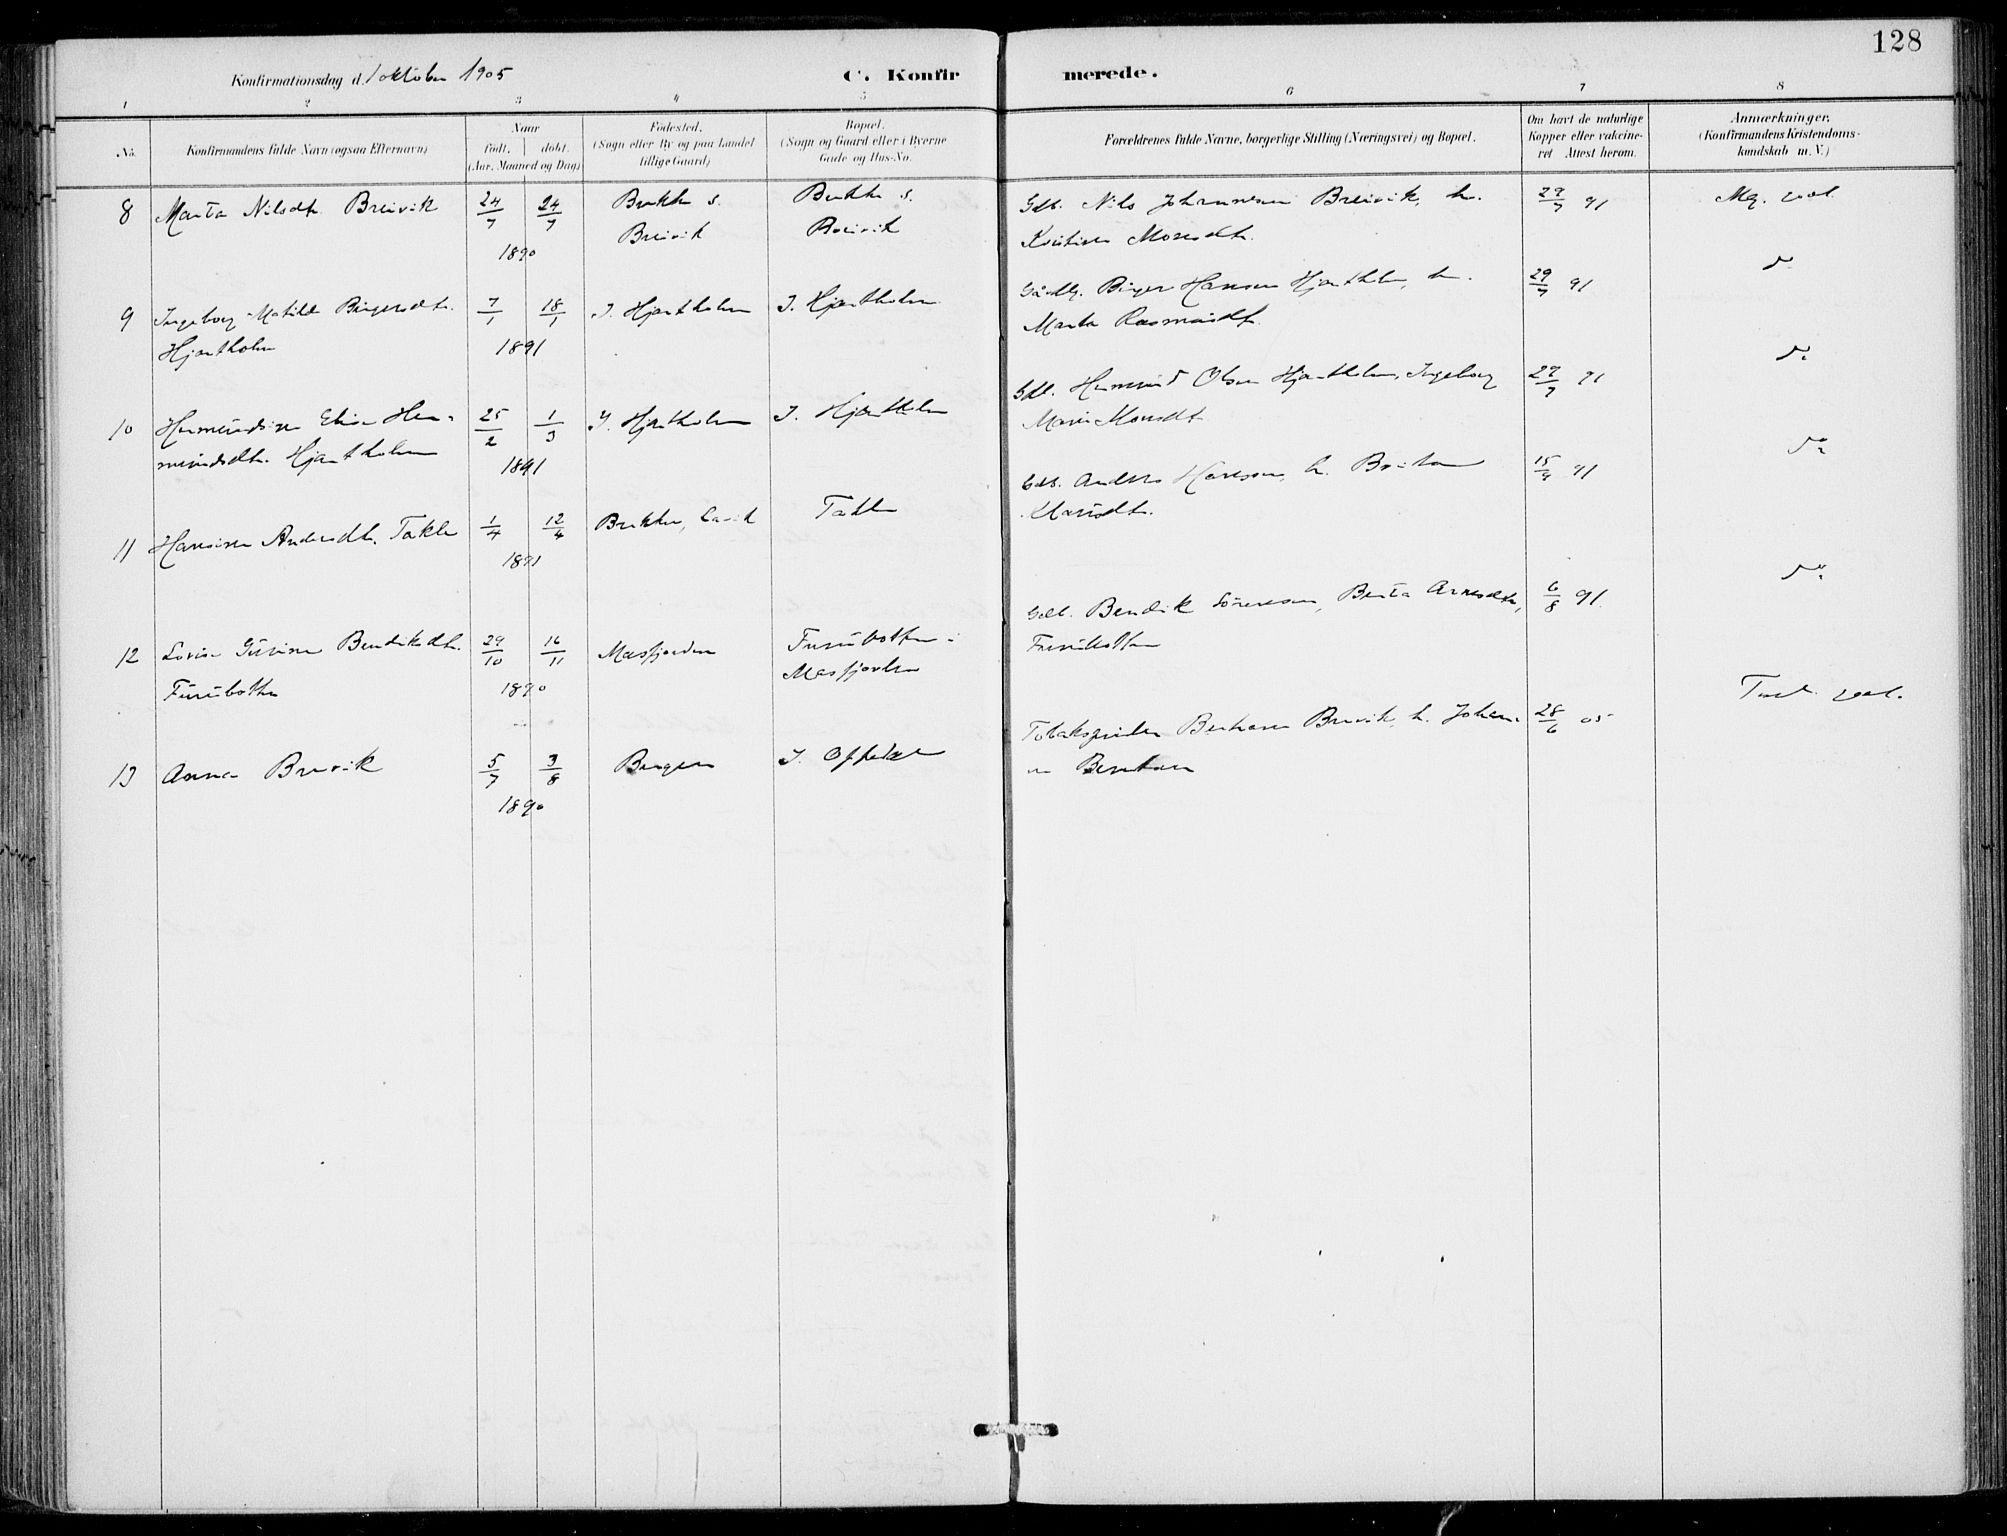 128
Konfirmationsdag d. 1 oktober 1905
C. Konfirmerede.
1 2 3 4 5 6 7 8
No.
Konfirmandens fulde Navn (ogsaa Efternavn)
Naar
født. døbt.
(Aar, Maaned og Dag)
Fødested.
(Sogn eller By og paa Landet
tillige Gaard)
Bopæl.
(Sogn og Gaard eller i Byerne
Gade og Hus-No.
Forældrenes fulde Navne, borgerlige Stilling (Næringsvei) og Bopæl.
Om havt de naturlige
Kopper eller vakcine-
ret Attest herom.
Anmærkninger.
(Konfirmandens Kristendoms-
kundskab m. V.)
8 Marta Nilsdt. Breivik 24/7 24/7 Brekke s. Brekke s. Gdb. Nils Johannesen Breivik, h. 29/7 91 Mg. godt.
Breivik Breivik Kristine Monsdt.
1890
9 Ingeborg Matilde Birgersdt. 7/1 18/1 I. Hjartholm I. Hjartholm Birger Hansen Hjartholm, h. 29/7 91 do
Hjartholm 1891 Marta Rasmusdt.
10 Hermundine Elise Her- 25/2 1/3 I. Hjartholm I. Hjartholm Gdb. Hermund Olsen Hjartholm, Ingeborg 29/7 91 do
mundsdt. Hjartholm 1891 Marie Monsdt.
11 Hansine Andersdt. Takle 1/4 12/4 Brekke, Lavik Takle Gdb. Anders Hansen, h. Britha 15/9 91 do
1891
12 Lovise Gurine Bendiksdt. 29/10 16/11 Masfjorden Furubotten i Gdb. Bendik Sørensen, Berta Arnesdt., 6/8 91. do
Furubotten 1890 Masfjorden Furubotten
13 Anna Brevik 5/7 3/8 Bergen I. Oppedal Tobakspinder Berhard Brevik, h. Johan- 28/6 05 godt.
1890 ne